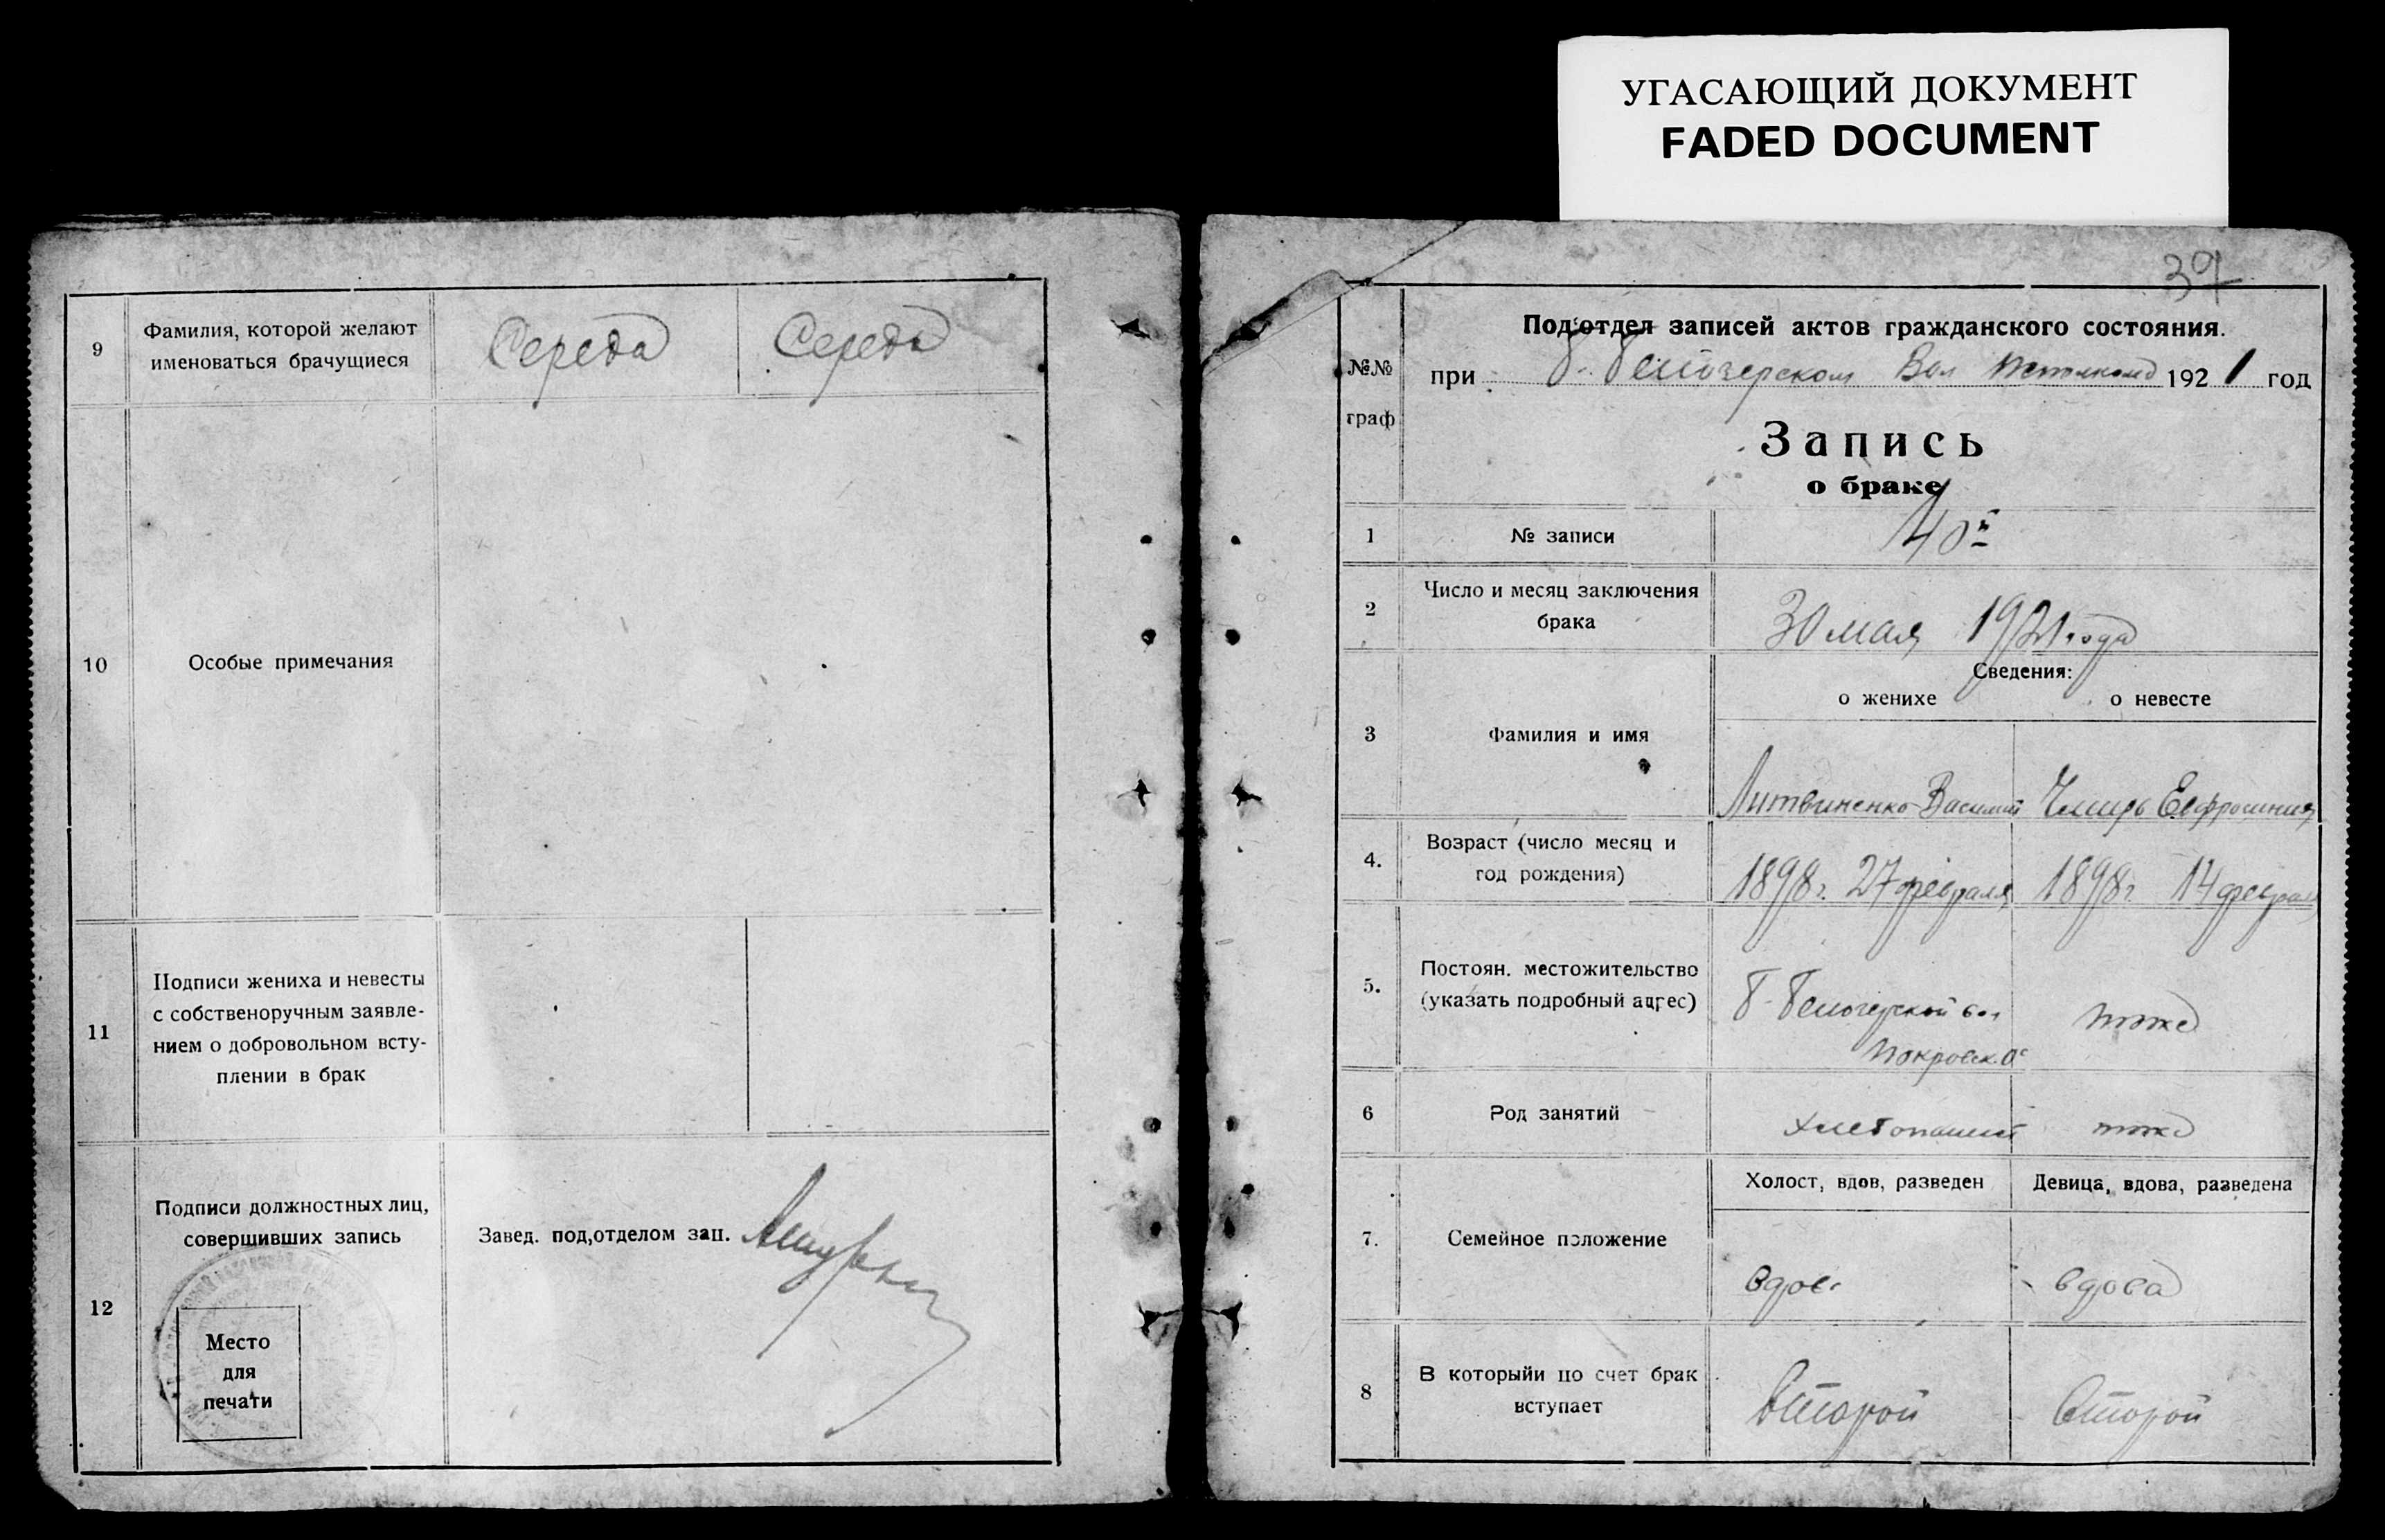 УГАСАЮЩИЙ ДОКУМЕНТ
FADED DOCUMENT
9
Фамилия, которой желают
именоваться брачущиеся
Середа
Середа
10
Особые примечания
11
Подписи жениха и невесты
с собственоручным заявле-
нием о добровольном всту-
плении в брак
12
Подписи должностных лиц,
совершивших запись
Место
для
печати
Завед. под,отделом зап.
39
№№
граф
Под'отдел записей актов гражданского состояния.
при Б. Белозерском Вол Исполкоме 1921 год
Запись
о браке
1
№ записи
40й
2
Число и месяц заключения
брака
30 мая 1921 года
3
Фамилия и имя
Сведения:
о женихе
о невесте
Литвиненко Василий
Евфросиния
4.
Возраст (число месяц и
год рождения)
1898 г. 27 февраля
1898 г. 14 феврал
5.
Постоян. местожительство
(указать подробный адрес)
Б-Белозерской вол
Покровск.
тоже
6
Род занятий
хлебопашец
тоже
7.
Семейное положение
Холост, вдов, разведен
Девица, вдова, разведена
вдов
вдова
8
В которыйи по счет брак
вступает
Второй
Второй